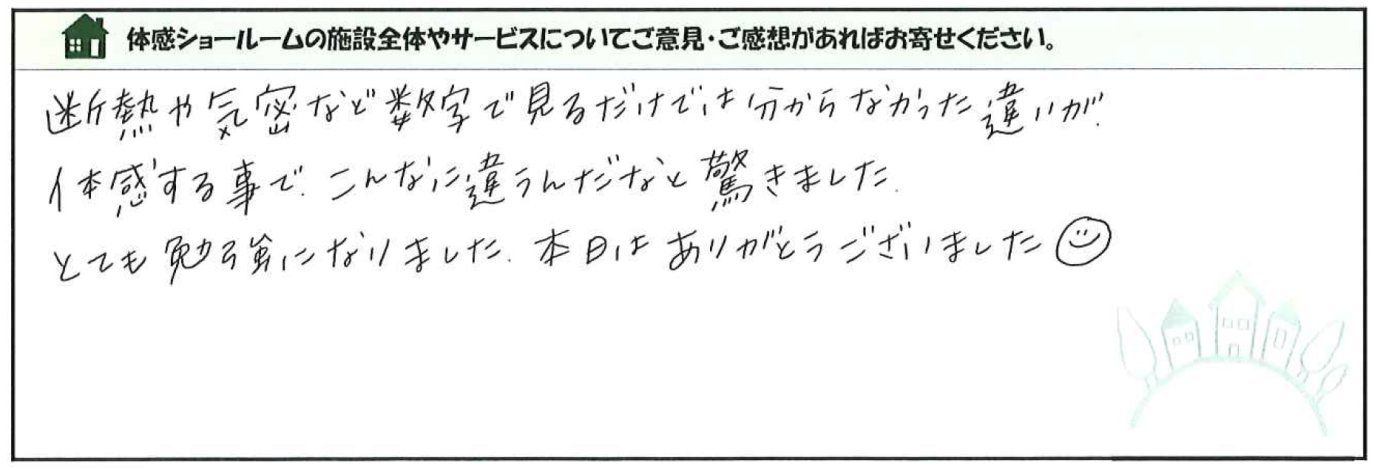 体感ショールームの施設全体やサービスについてご意見・ご感想があればお寄せください。
断熱や気密など数字で見るだけでは分からなかった違いが
体感する事で、こんなに違うんだなと驚きました。
とても勉強になりました。本日はありがとうございました